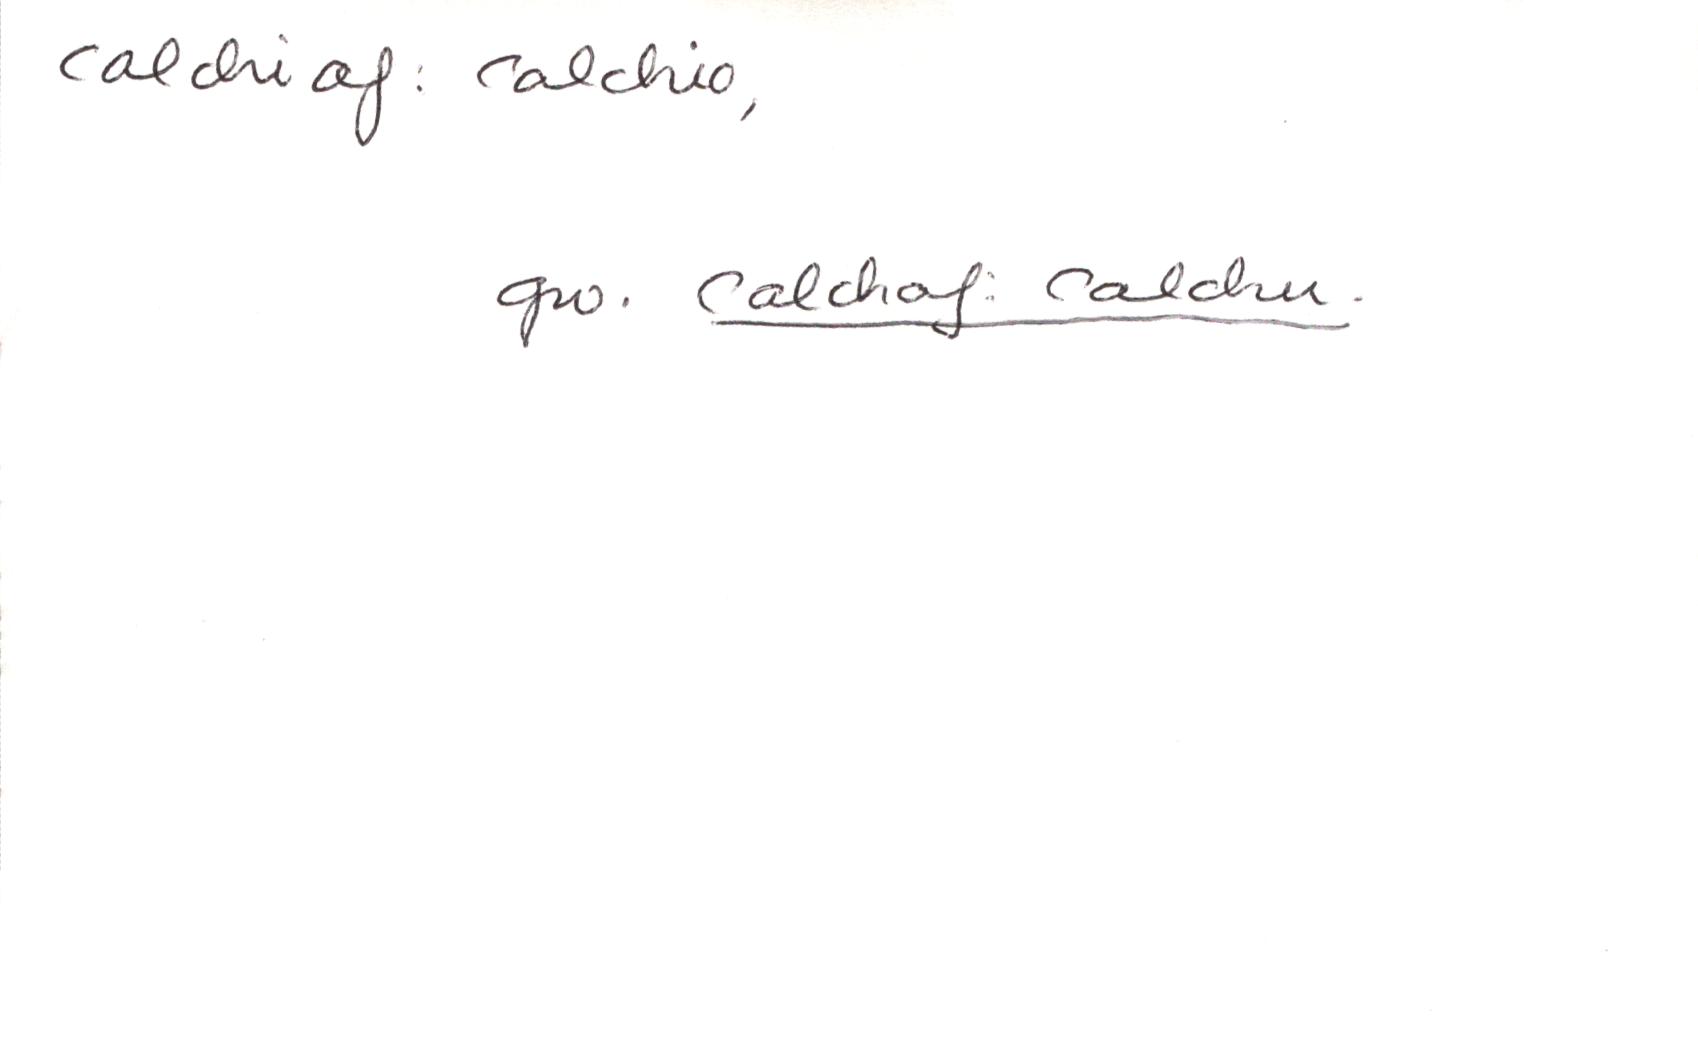 calchiaf: calchio,
gw. calchaf: calchu.